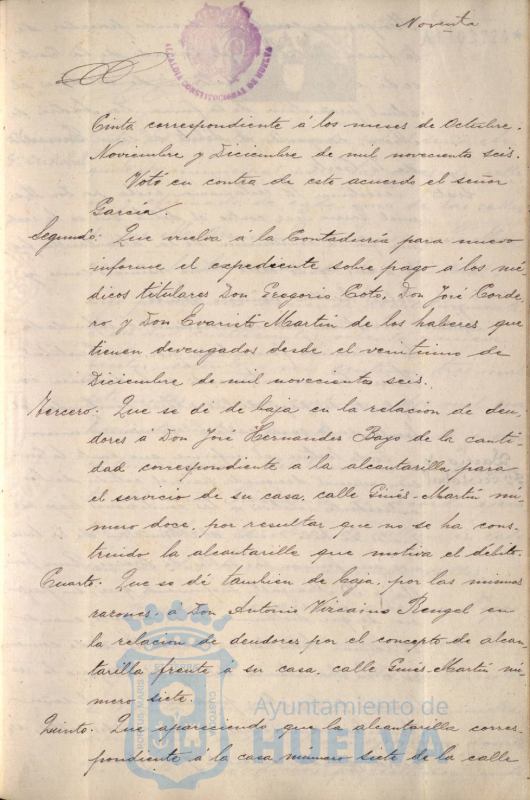 Noventa
ALCALDIA CONSTITUCIONAL DE HUELVA
Cinta correspondiente á los meses de Octubre,
Noviembre y Diciembre de mil novecientos seis.
Votó en contra de este acuerdo el señor
García.
Segundo. Que vuelva á la Contaduría para nuevo
informe el expediente sobre pago á los mé-
dicos titulares Don Gregorio Coto, Don José Corde-
ro, y Don Evaristo Martín de los haberes que
tienen devengados desde el veintiuno de
Diciembre de mil novecientos seis.
Tercero. Que se dé de baja en la relacion de deu-
dores á Don José Hernandes Bayo de la canti-
dad correspondiente á la alcantarilla para
el servicio de su casa, calle Ginés-Martín nú-
mero doce, por resultar que no se ha cons-
truido la alcantarilla que motiva el débito.
Cuarto. Que se dé tambien de baja, por las mismas
razones, á Don Antonio Vizcaino Rengel en
la relacion de deudores por el concepto de alcan-
tarilla frente á su casa, calle Ginés-Martín nú-
mero siete.
Quinto. Que apareciendo que la alcantarilla corres-
pondiente á la casa número siete de la calle
Ayuntamiento de
HUELVA